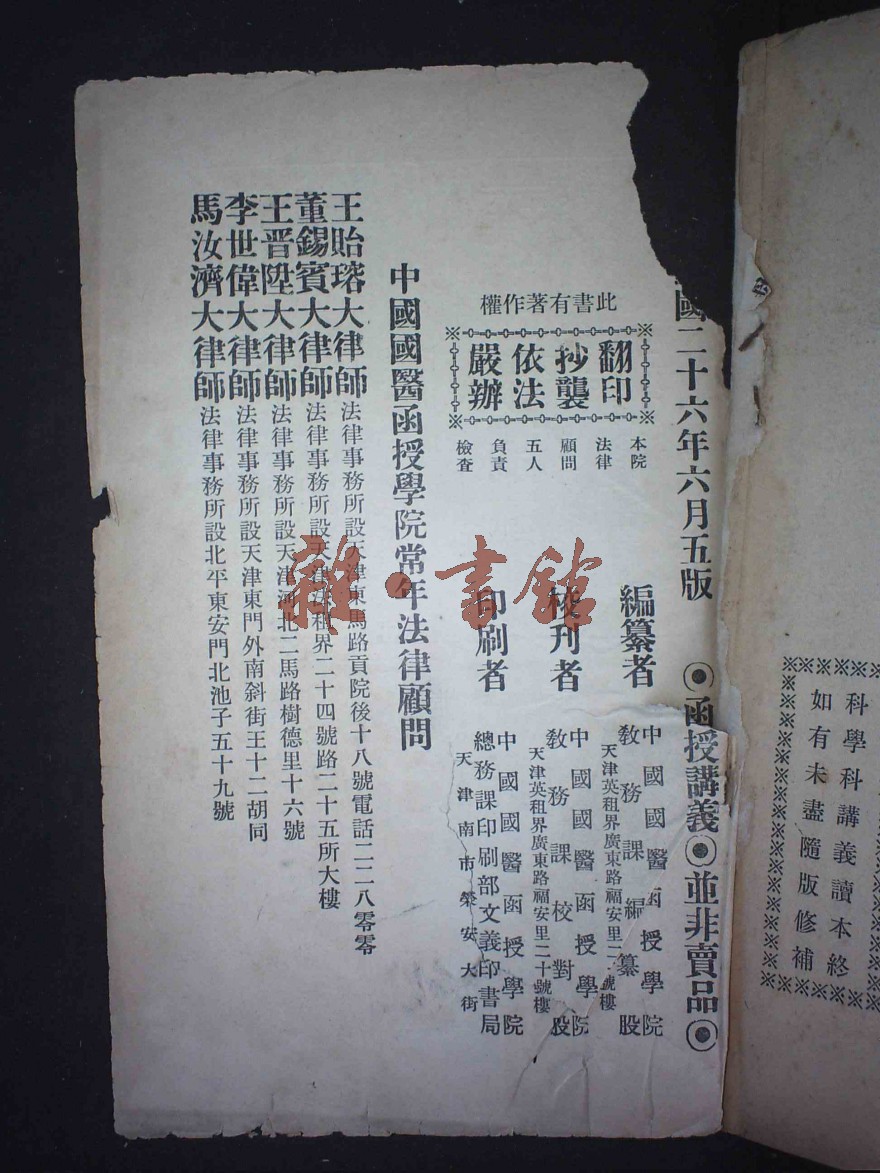 科學科講義讀本終
如有未盡隨版修補
國二十六年六月五版
◉函授講義◉並非賣品◉
此書有著作權
翻印
抄襲
依法
嚴辦
本院
法律
顧問
五人
負責
檢查
編纂者
中國國醫函授學院
教務課編纂股
天津英租界廣東路福安里二號樓
校刊者
中國國醫函授學院
教務課校對股
天津英租界廣東路福安里二十號樓
印刷者
中國國醫函授學院
總務課印刷部文義印書局
天津南市榮安大街
中國國醫函授學院常年法律顧問
王貽瑢大律師法律事務所設天津東馬路貢院後十八號電話二二八零零
董錫賓大律師法律事務所設天津法租界二十四號路二十五所大樓
王晋陞大律師法律事務所設天津河北二馬路樹德里十六號
李世偉大律師法律事務所設天津東門外南斜街王十二胡同
馬汝濟大律師法律事務所設北平東安門北池子五十九號
雜·書館